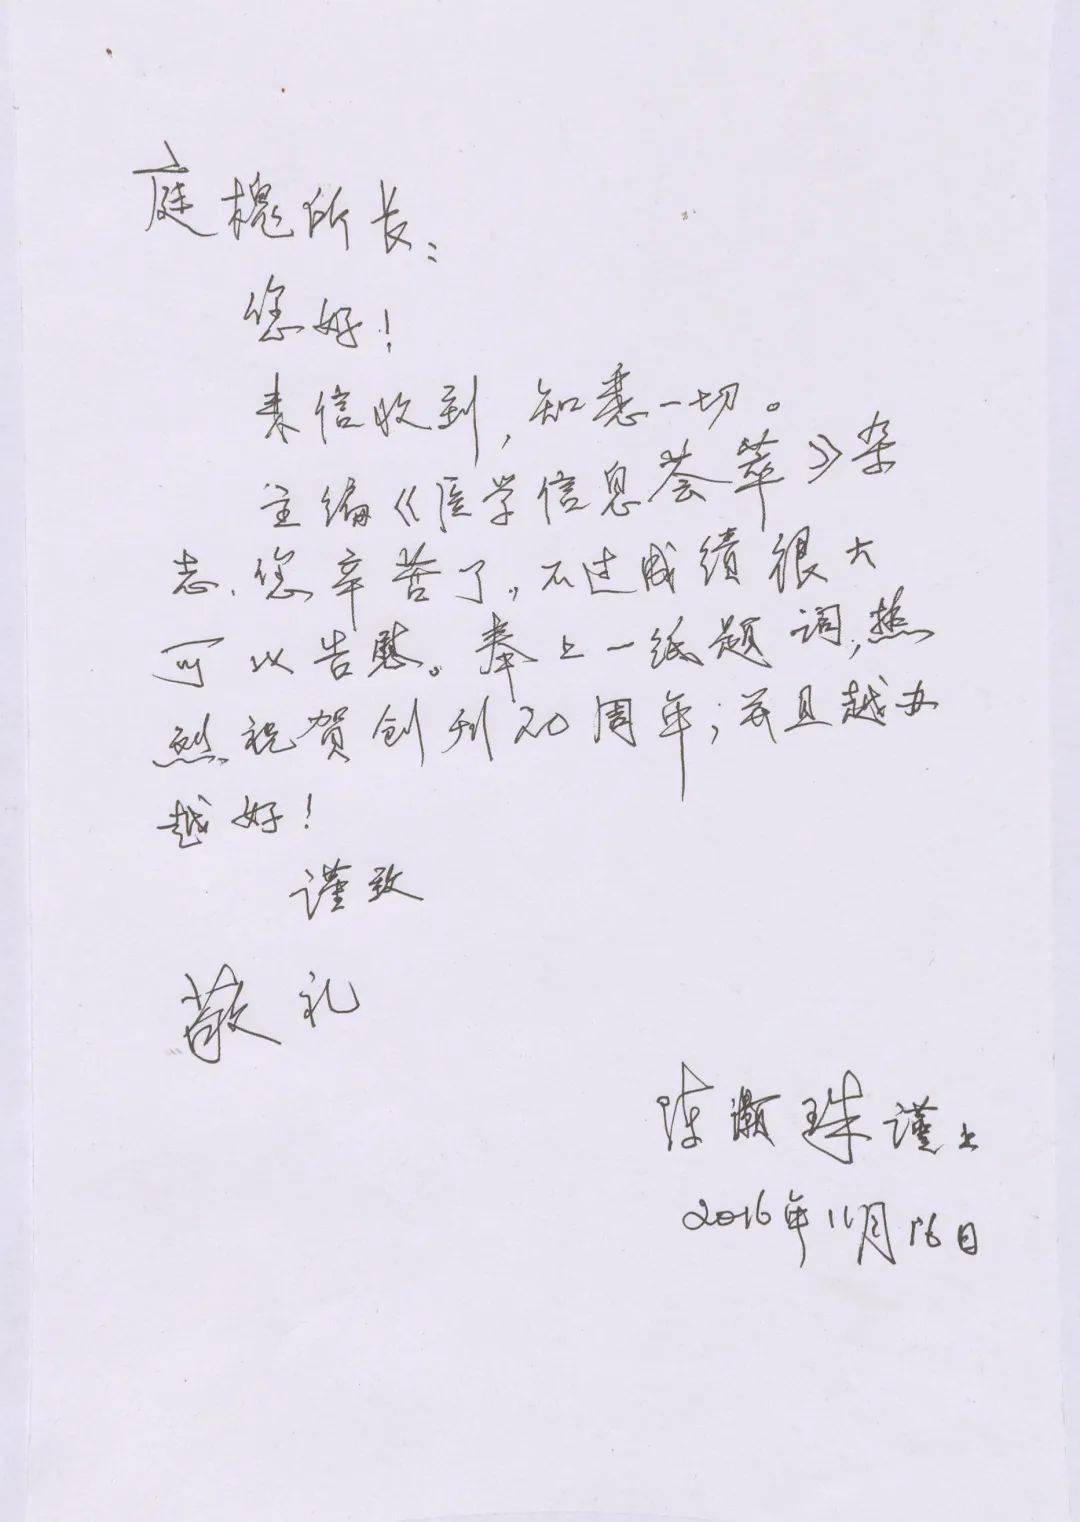 庭槐所长：
您好！
来信收到，知悉一切。
主编《医学信息荟萃》杂
志，您辛苦了，不过成绩很大
可以告慰。奉上一纸题词，热
烈祝贺创刊20周年；并且越办
越好！
谨致
敬礼
陈灏珠谨上
2016年11月16日